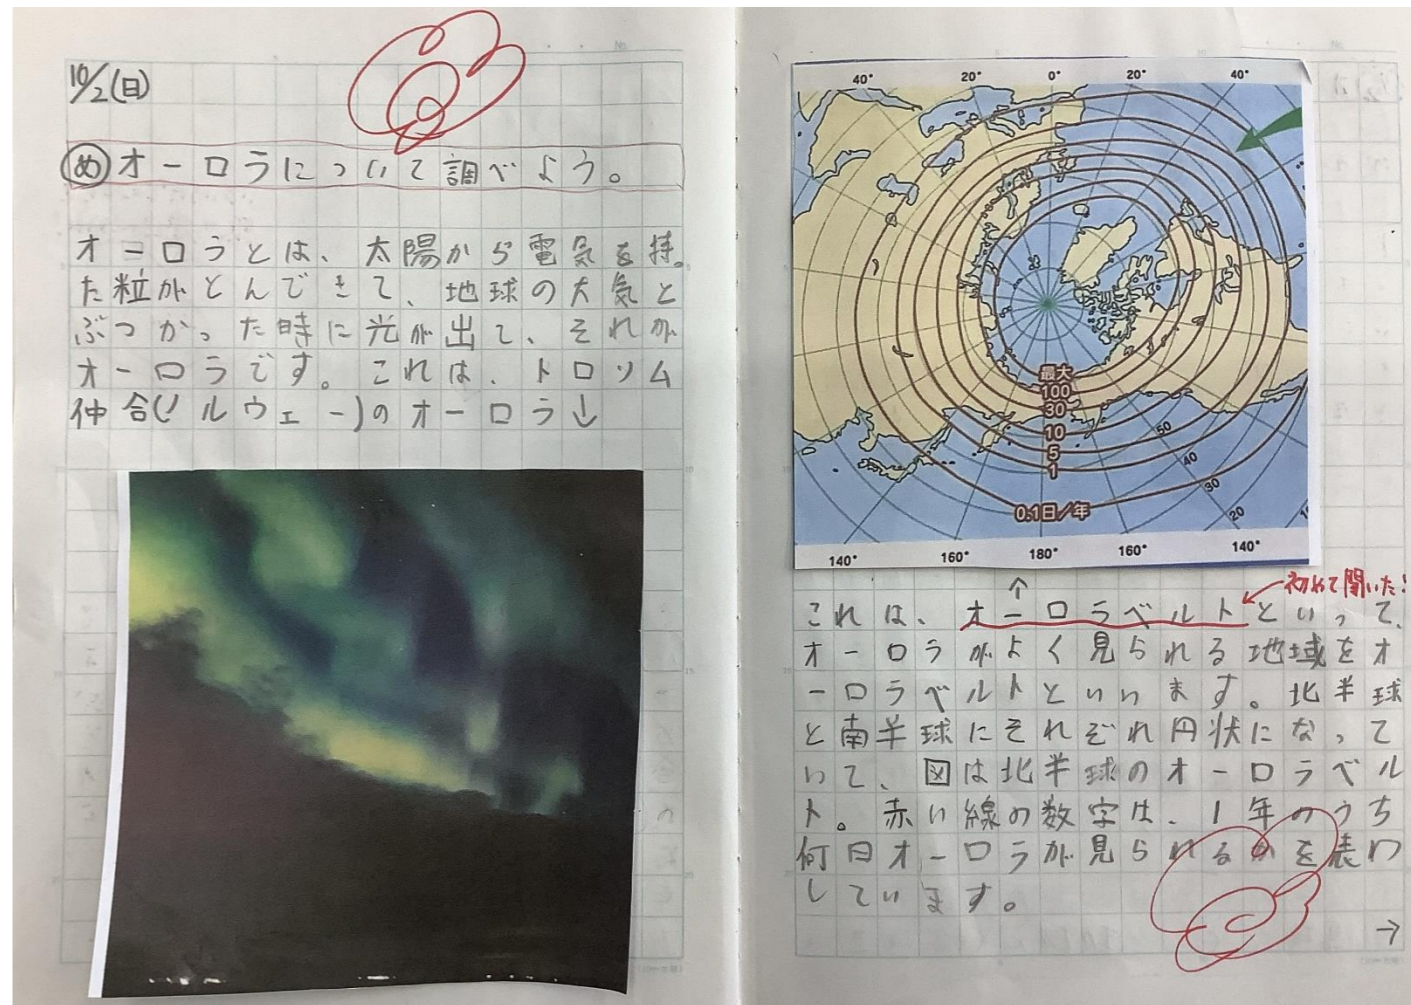 10/2(日)
め オーロラについて調べよう。
オーロラとは、太陽から電気を持っ
た粒がとんできて、地球の大気と
ぶつかった時に光が出て、それが
オーロラです。これは、トロソム
仲合(ノルウェー)のオーロラ↓
40° 20° 0° 20° 40°
最大
100
30
10
5
1
0.1日/年
50
40
30
20
140° 160° 180° 160° 140°
↑
初めて聞いた!
これは、オーロラベルトといって、
オーロラがよく見られる地域をオ
ーロラベルトといいます。北半球
と南半球にそれぞれ円状になって
いて、図は北半球のオーロラベル
ト。赤い線の数字は、1年のうち
何日オーロラが見られるかを表わ
しています。
→